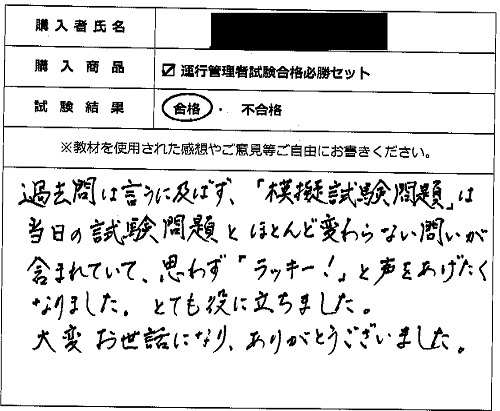 購入者氏名
購入商品 ☑ 運行管理者試験合格必勝セット
試験結果 合格 ・ 不合格
※教材を使用された感想やご意見等ご自由にお書きください。
過去問は言うに及ばず、「模擬試験問題」は
当日の試験問題とほとんど変わらない問いが
含まれていて、思わず「ラッキー!」と声をあげたく
なりました。とても役に立ちました。
大変お世話になり、ありがとうございました。